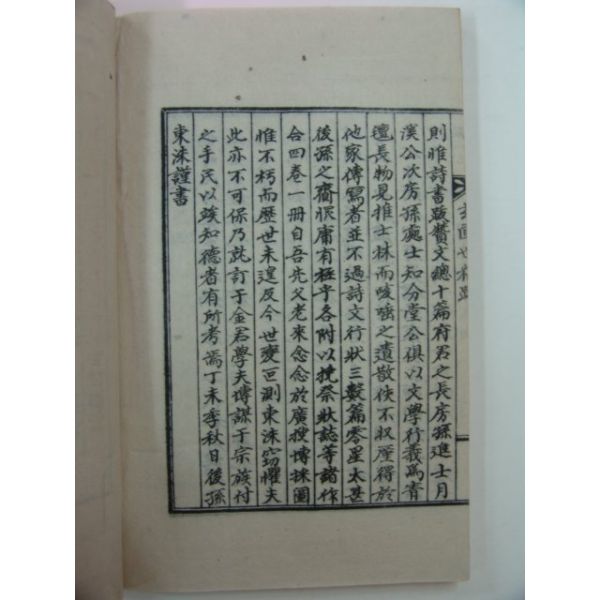 則惟詩書跋贊文總十篇府君之長房孫進士月
溪公次房孫處士知分堂公俱以文學行義爲當
擅長物見推士林而咳唾之遺散佚不収厪得於
他家傳寫者並不過詩文行狀三數篇零星太甚
後孫之齎恨庸有極乎各附以挽祭狀誌等諸作
合四卷一冊自吾先父老來念念於廣搜博採圖
惟不朽而歷世未遑及今世變叵測東洙竊懼夫
此亦不可保乃就訂于金君學夫博謀于宗族付
之手民以竢知德者有所考焉丁未季秋日後孫
東洙謹書